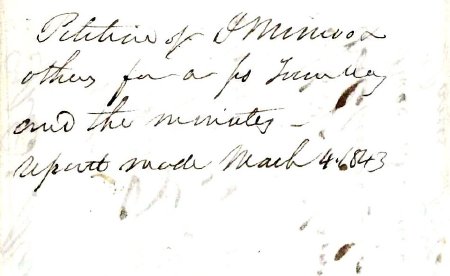 Petition of J Minor &
others for a
and the minutes –
report made March 4. 1843